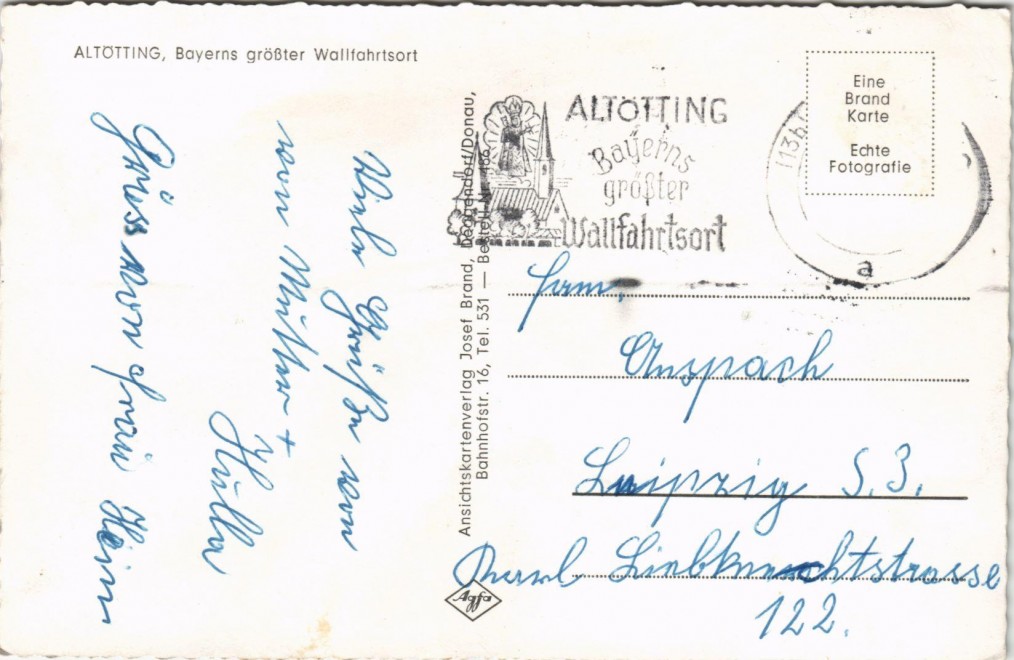 ALTÖTTING, Bayerns größter Wallfahrtsort
Viele Grüße von
von Mutter +
Hülla
Grüss von Frau Heim
Ansichtskartenverlag Josef Brand, Deggendorf/Donau,
Bahnhofstr. 16, Tel. 531 — Bestell-Nr. 486
ALTÖTTING
Bayerns
größter
Wallfahrtsort
a
Eine
Brand
Karte
Echte
Fotografie
Fam.
Anspach
Leipzig S. 3.
Karl Liebknechtstrasse
122.
Agfa